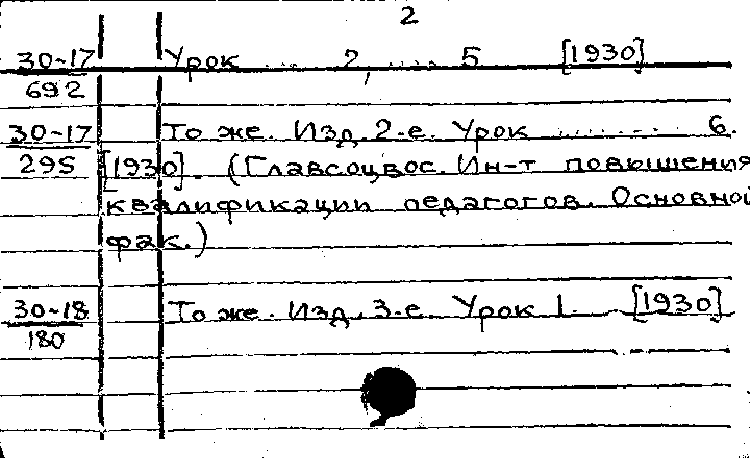 2
30-17 Урок .... 2, .... 5 [1930]
692
30-17 То же. Изд. 2-е. Урок ......... 6.
295 [1930]. (Главсоцвос. Ин-т повышения
квалификации педагогов. Основной
фак.)
30-18 То же. Изд. 3-е. Урок 1. [1930]
180